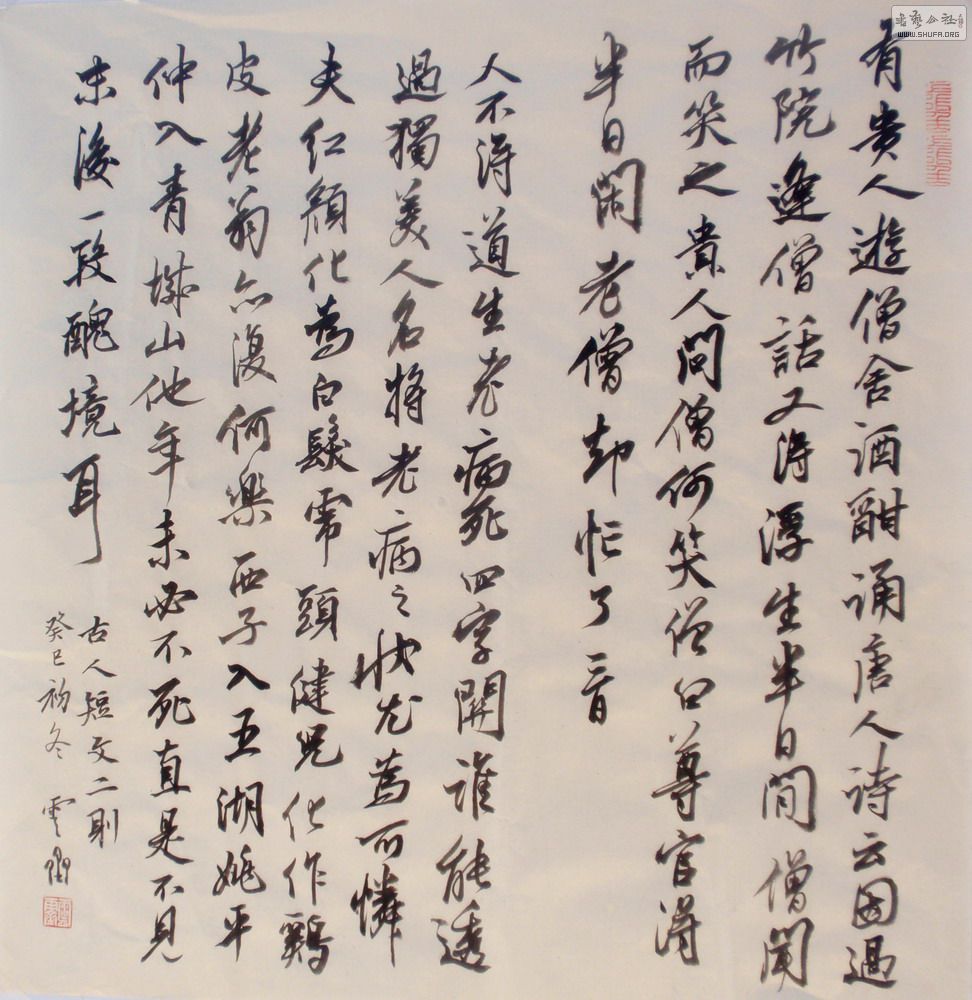 有貴人遊僧舍酒酣誦唐人詩云因過
竹院逢僧話又得浮生半日閒僧聞
而笑之貴人問僧何笑僧曰尊官得
半日閑老僧却忙了三日
人不得道生老病死四字關誰能透
過獨美人名將老病之狀尤為可憐
夫紅顏化為白髮虎頭健兒化作鷄
皮老翁亦復何樂西子入五湖姚平
仲入青城山他年未必不死直是不見
末後一段醜境耳
古人短文二則
癸巳初冬
WWW.SHUFA.ORG